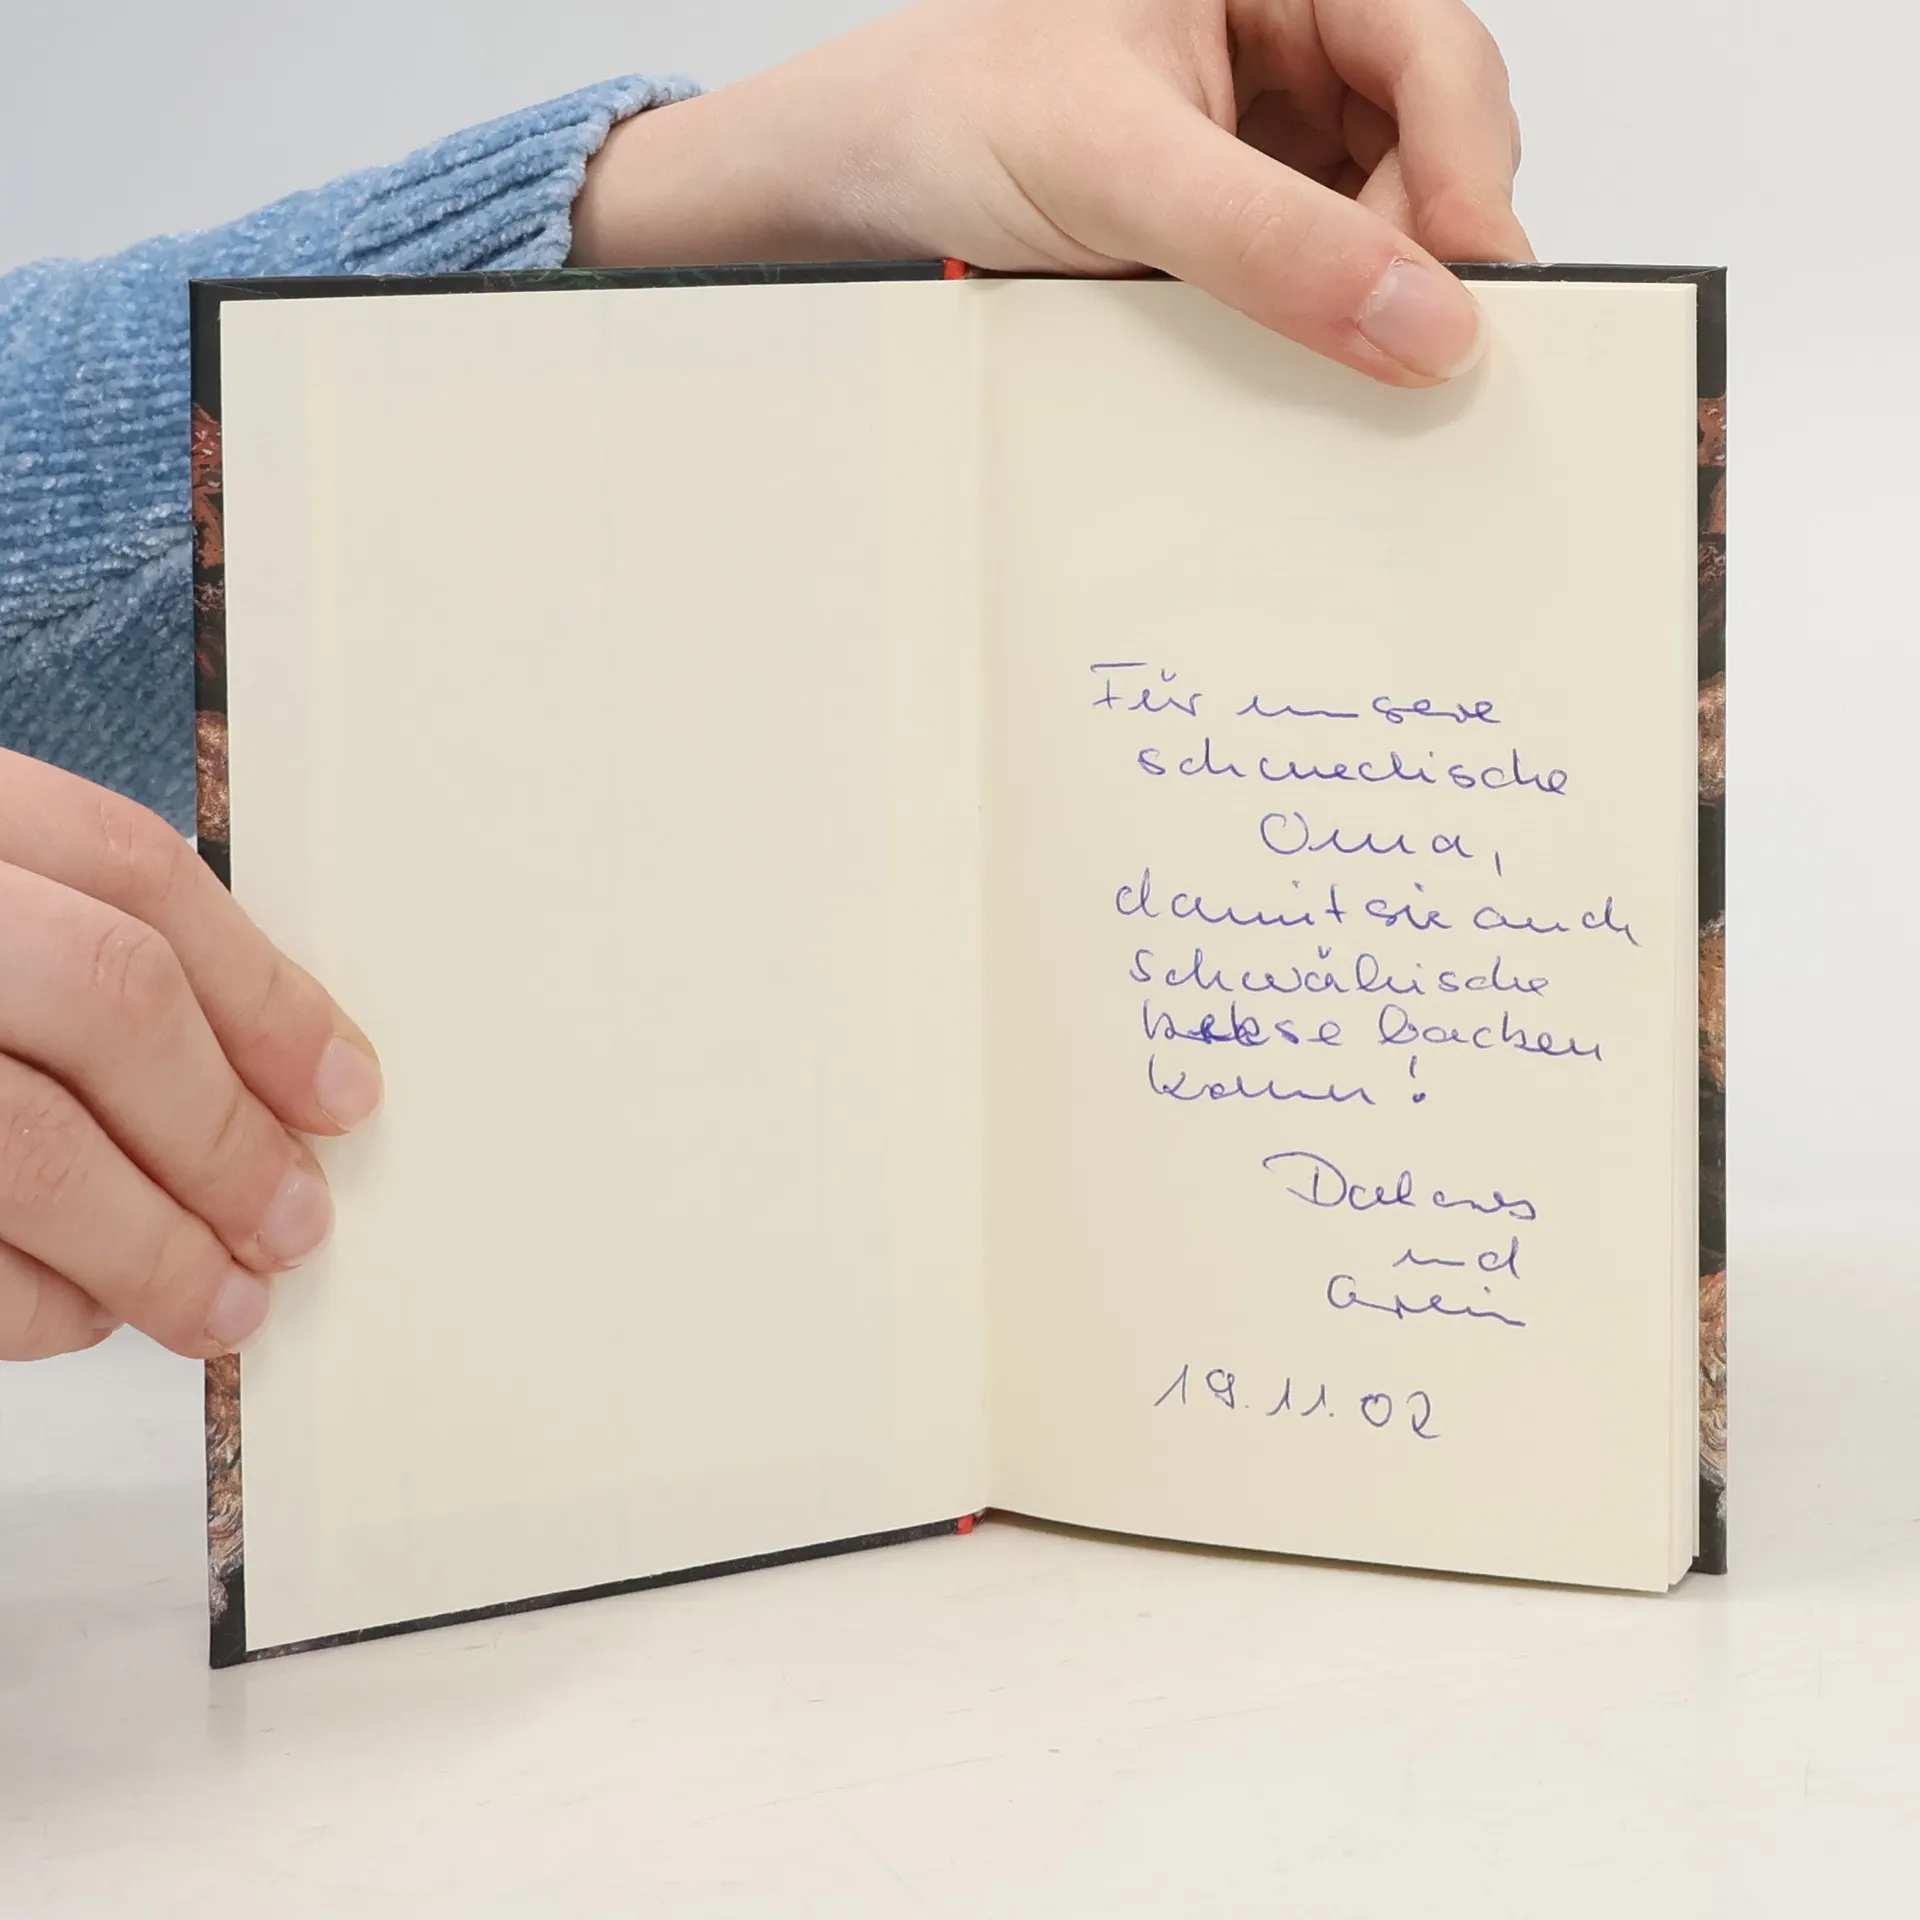 Für unsere
schwedische
Oma,
damit sie auch
schwäbische
kekse backen
kann!
und
19.11.02